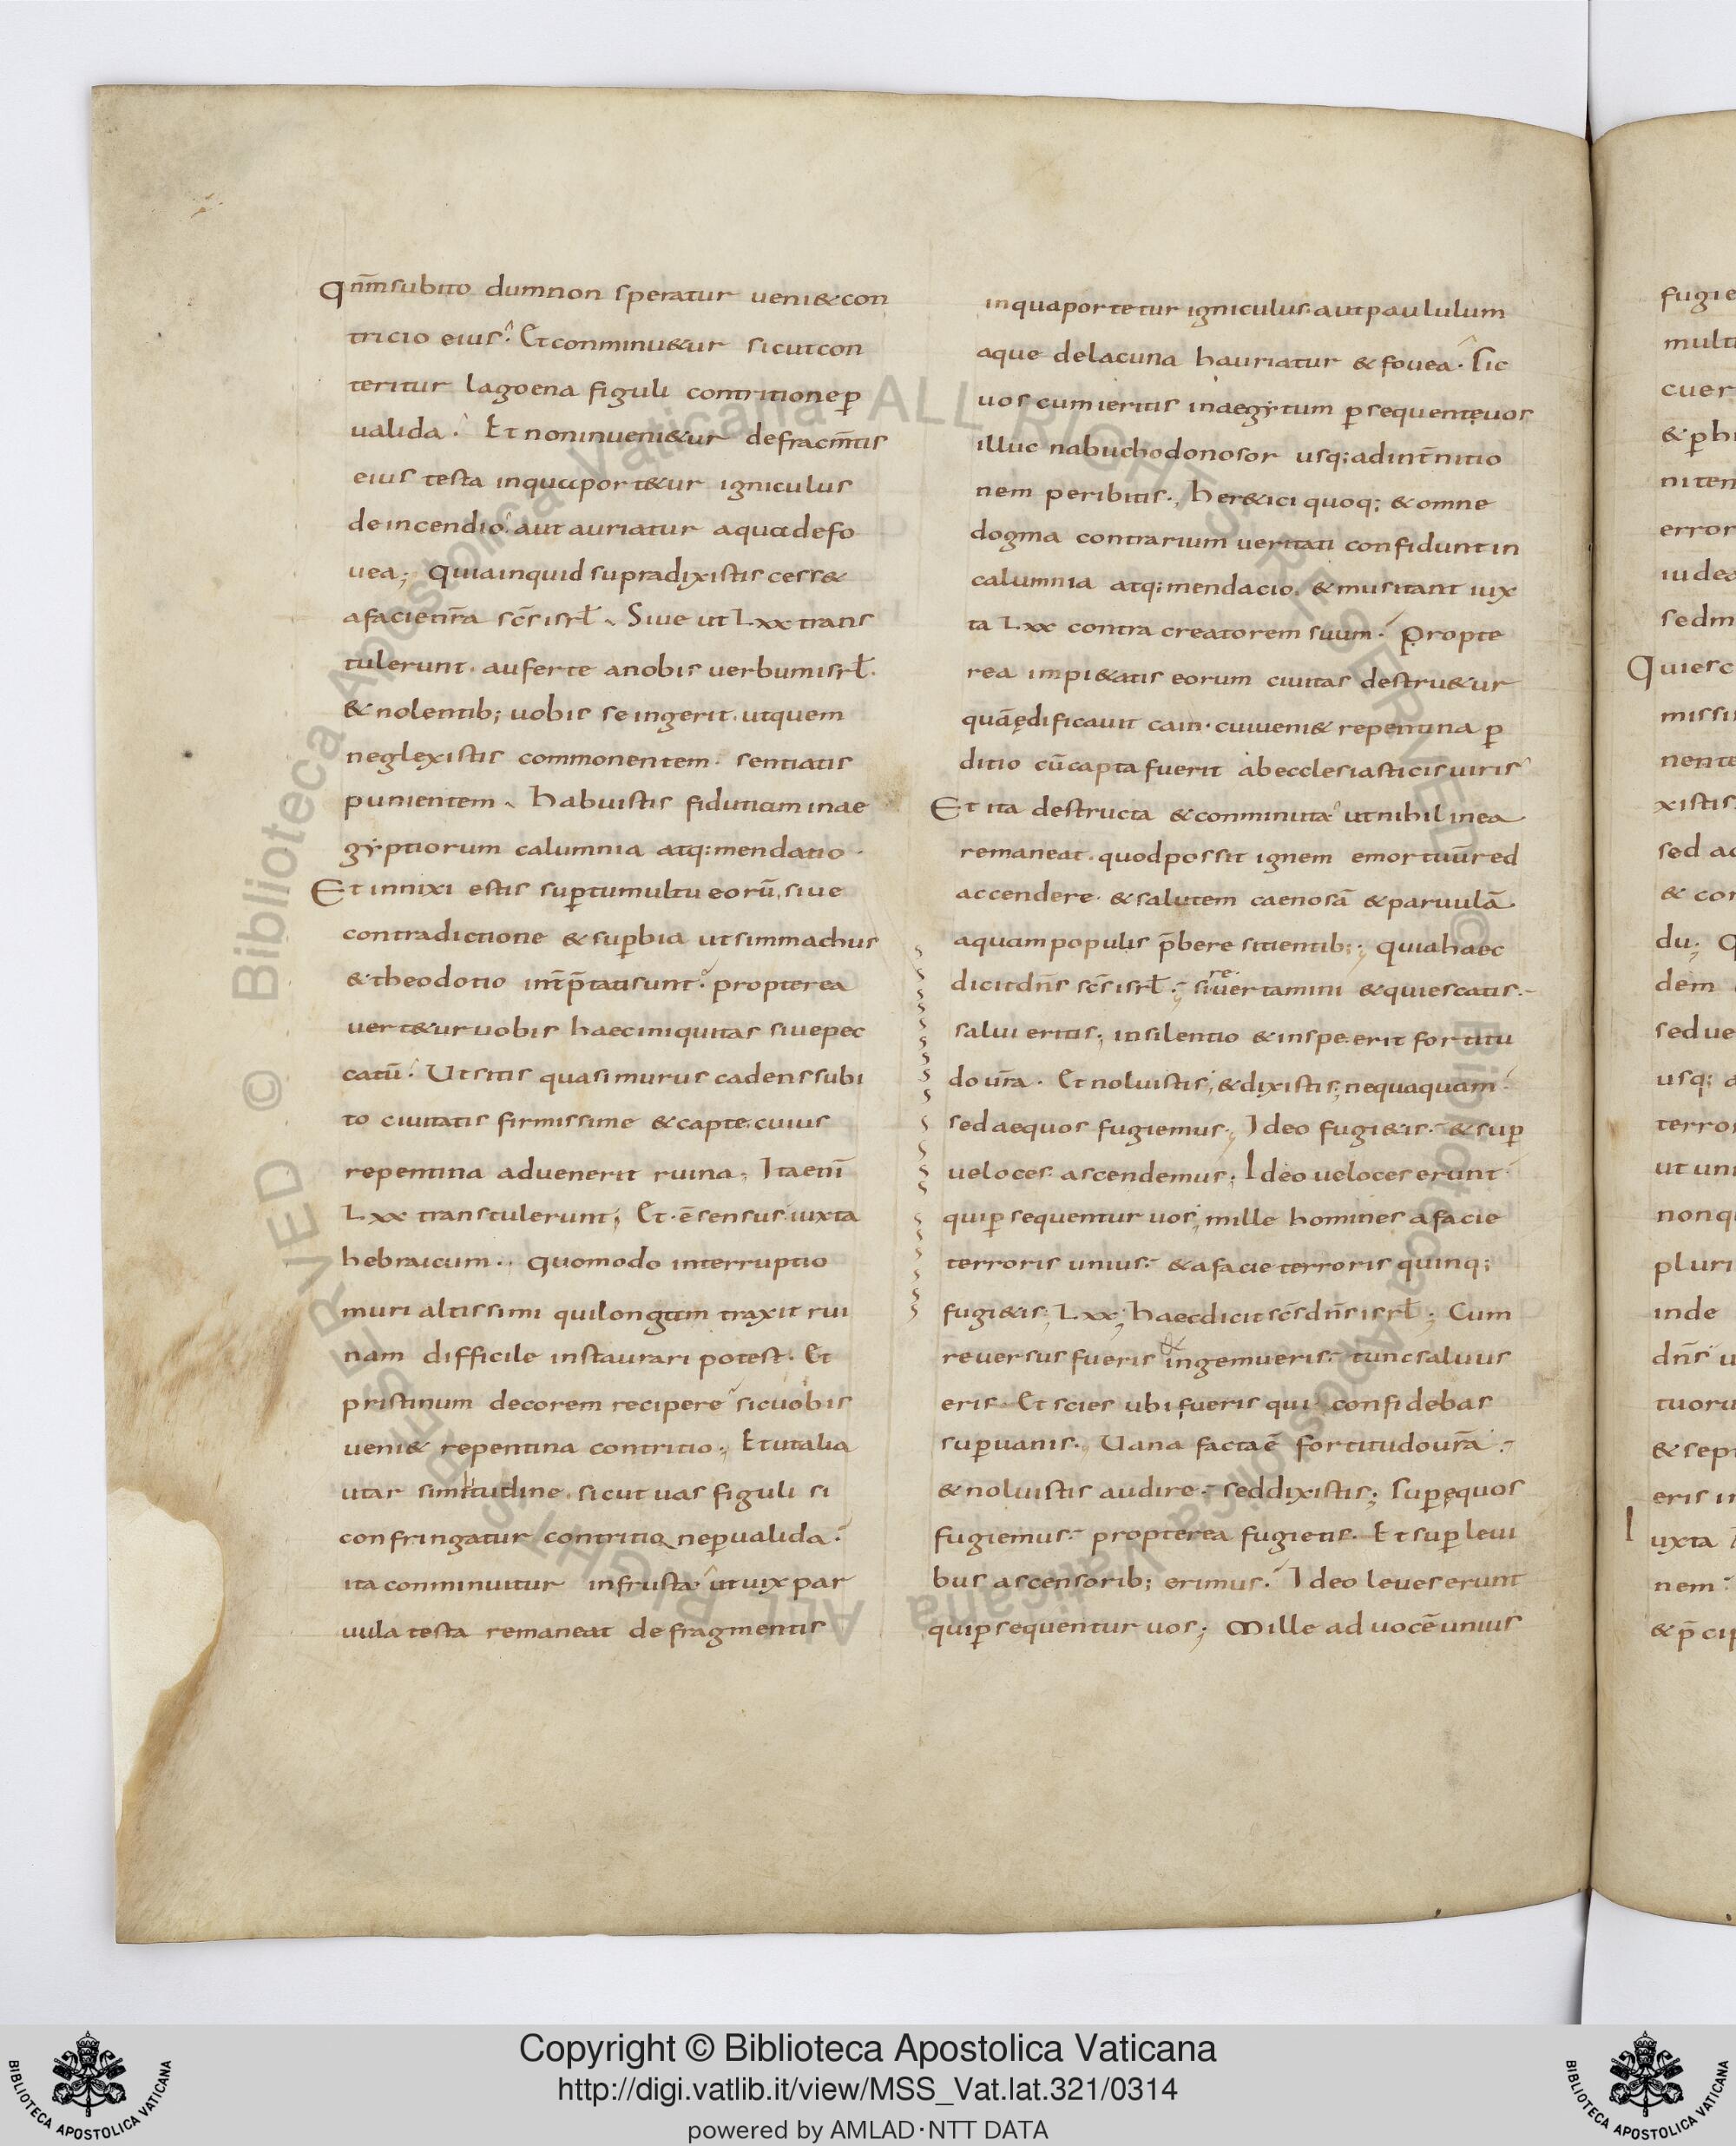 Qnm̄ subito dum non speratur ueni&con
tricio eius. Et conminu&ur sicut con
teritur lagoena figuli contritione p̄
ualida. Et non inueni&ur de fracm̄tis
eius testa in qua port&ur igniculus
de incendio. aut auriatur aqua de fo
uea; Quia inquid supra dixistis cess&
a facie nr̄a sc̄s isrl̄. Siue ut Lxx trans
tulerunt. auferte a nobis uerbum isrl̄.
& nolentib; uobis se ingerit. ut quem
neglexistis commonentem. sentiatis
punientem. habuistis fiduciam in ae
gyptiorum calumnia atq; mendatio.
Et innixi estis sup̄ tumultu eorū, siue
contradictione & sup̄bia ut simmachus
& theodotio int̄p̄tati sunt. propterea
uert&ur uobis haec iniquitas siue pec
catū. Ut sitis quasi murus cadens subi
to ciuitatis firmissime & capte. cuius
repentina aduenerit ruina; Ita enī
Lxx transtulerunt; Et ē sensus iuxta
hebraicum. Quomodo interruptio
muri altissimi qui longam traxit rui
nam difficile instaurari potest. Et
pristinum decorem recipere sic uobis
ueni& repentina contritio; Et ut alia
utar similitudine. sicut uas figuli si
confringatur contritione p̄ualida.
ita comminuitur in frusta. ut uix par
uula testa remaneat de fragmentis
in qua portetur igniculus. aut paululum
aque de lacuna hauriatur & fouea. Sic
uos cum ieritis in aegytum p̄sequente uos
illuc nabuchodonosor usq; ad int̄nitio
nem peribitis; her&ici quoq; & omne
dogma contrarium ueritati confidunt in
calumnia atq; mendacio. & musitant iux
ta Lxx contra creatorem suum. Propte
rea impi&atis eorum ciuitas destru&ur
quā ędificauit cain. cui ueni& repentina p̄
ditio cū capta fuerit ab ecclesiasticis uiris
Et ita destructa & conminuta. ut nihil in ea
remaneat. quod possit ignem emortuūm red
accendere. & salutem caenosā & paruulā
aquam populis p̄bere sitientib;; Quia haec
dicit dn̄s sc̄s isrl̄; si reuertamini & quiescatis.
salui eritis; in silentio & in spe erit fortitu
do ur̄a. Et noluistis, & dixistis; nequaquam
sed ae quos fugiemus; Ideo fugi&is. & sup̄
ueloces ascendemus; Ideo ueloces erunt
qui p̄sequentur uos; mille homines a facie
terroris unius. & a facie terroris quinq;
fugi&is; Lxx; haec dicit sc̄s dn̄s isrl̄; Cum
reuersus fueris & ingemueris. tunc saluus
eris. Et scies ubi fueris qui confidebas
sup̄ uanis. Uana facta ē fortitudo ur̄a.
& noluistis audire. sed dixistis; sup̄ equos
fugiemus. propterea fugietis. Et sup̄ leui
bus ascensorib; erimus. Ideo leues erunt
qui p̄sequentur uos; Mille ad uocē unius
Copyright © Biblioteca Apostolica Vaticana
http://digi.vatlib.it/view/MSS_Vat.lat.321/0314
powered by AMLAD·NTT DATA
BIBLIOTECA APOSTOLICA VATICANA
BIBLIOTECA APOSTOLICA VATICANA